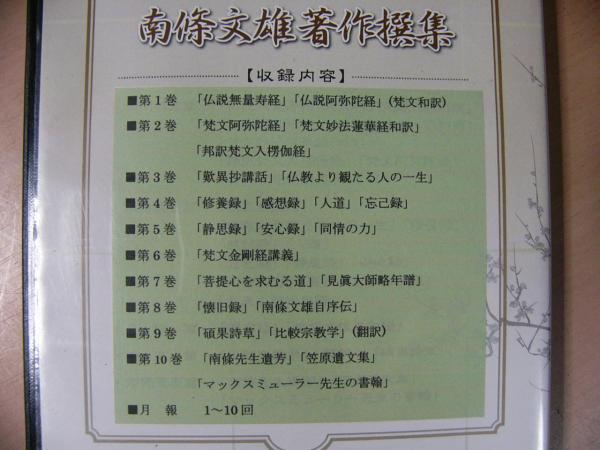 南條文雄著作撰集
【収録内容】
■第1巻 「仏説無量寿経」「仏説阿弥陀経」(梵文和訳)
■第2巻 「梵文阿弥陀経」「梵文妙法蓮華経和訳」
「邦訳梵文入楞伽経」
■第3巻 「歎異抄講話」「仏教より観たる人の一生」
■第4巻 「修養録」「感想録」「人道」「忘己録」
■第5巻 「静思録」「安心録」「同情の力」
■第6巻 「梵文金剛経講義」
■第7巻 「菩提心を求むる道」「見眞大師略年譜」
■第8巻 「懐旧録」「南條文雄自序伝」
■第9巻 「碩果詩草」「比較宗教学」(翻訳)
■第10巻 「南條先生遺芳」「笠原遺文集」
「マックスミューラー先生の書翰」
■月 報 1～10回